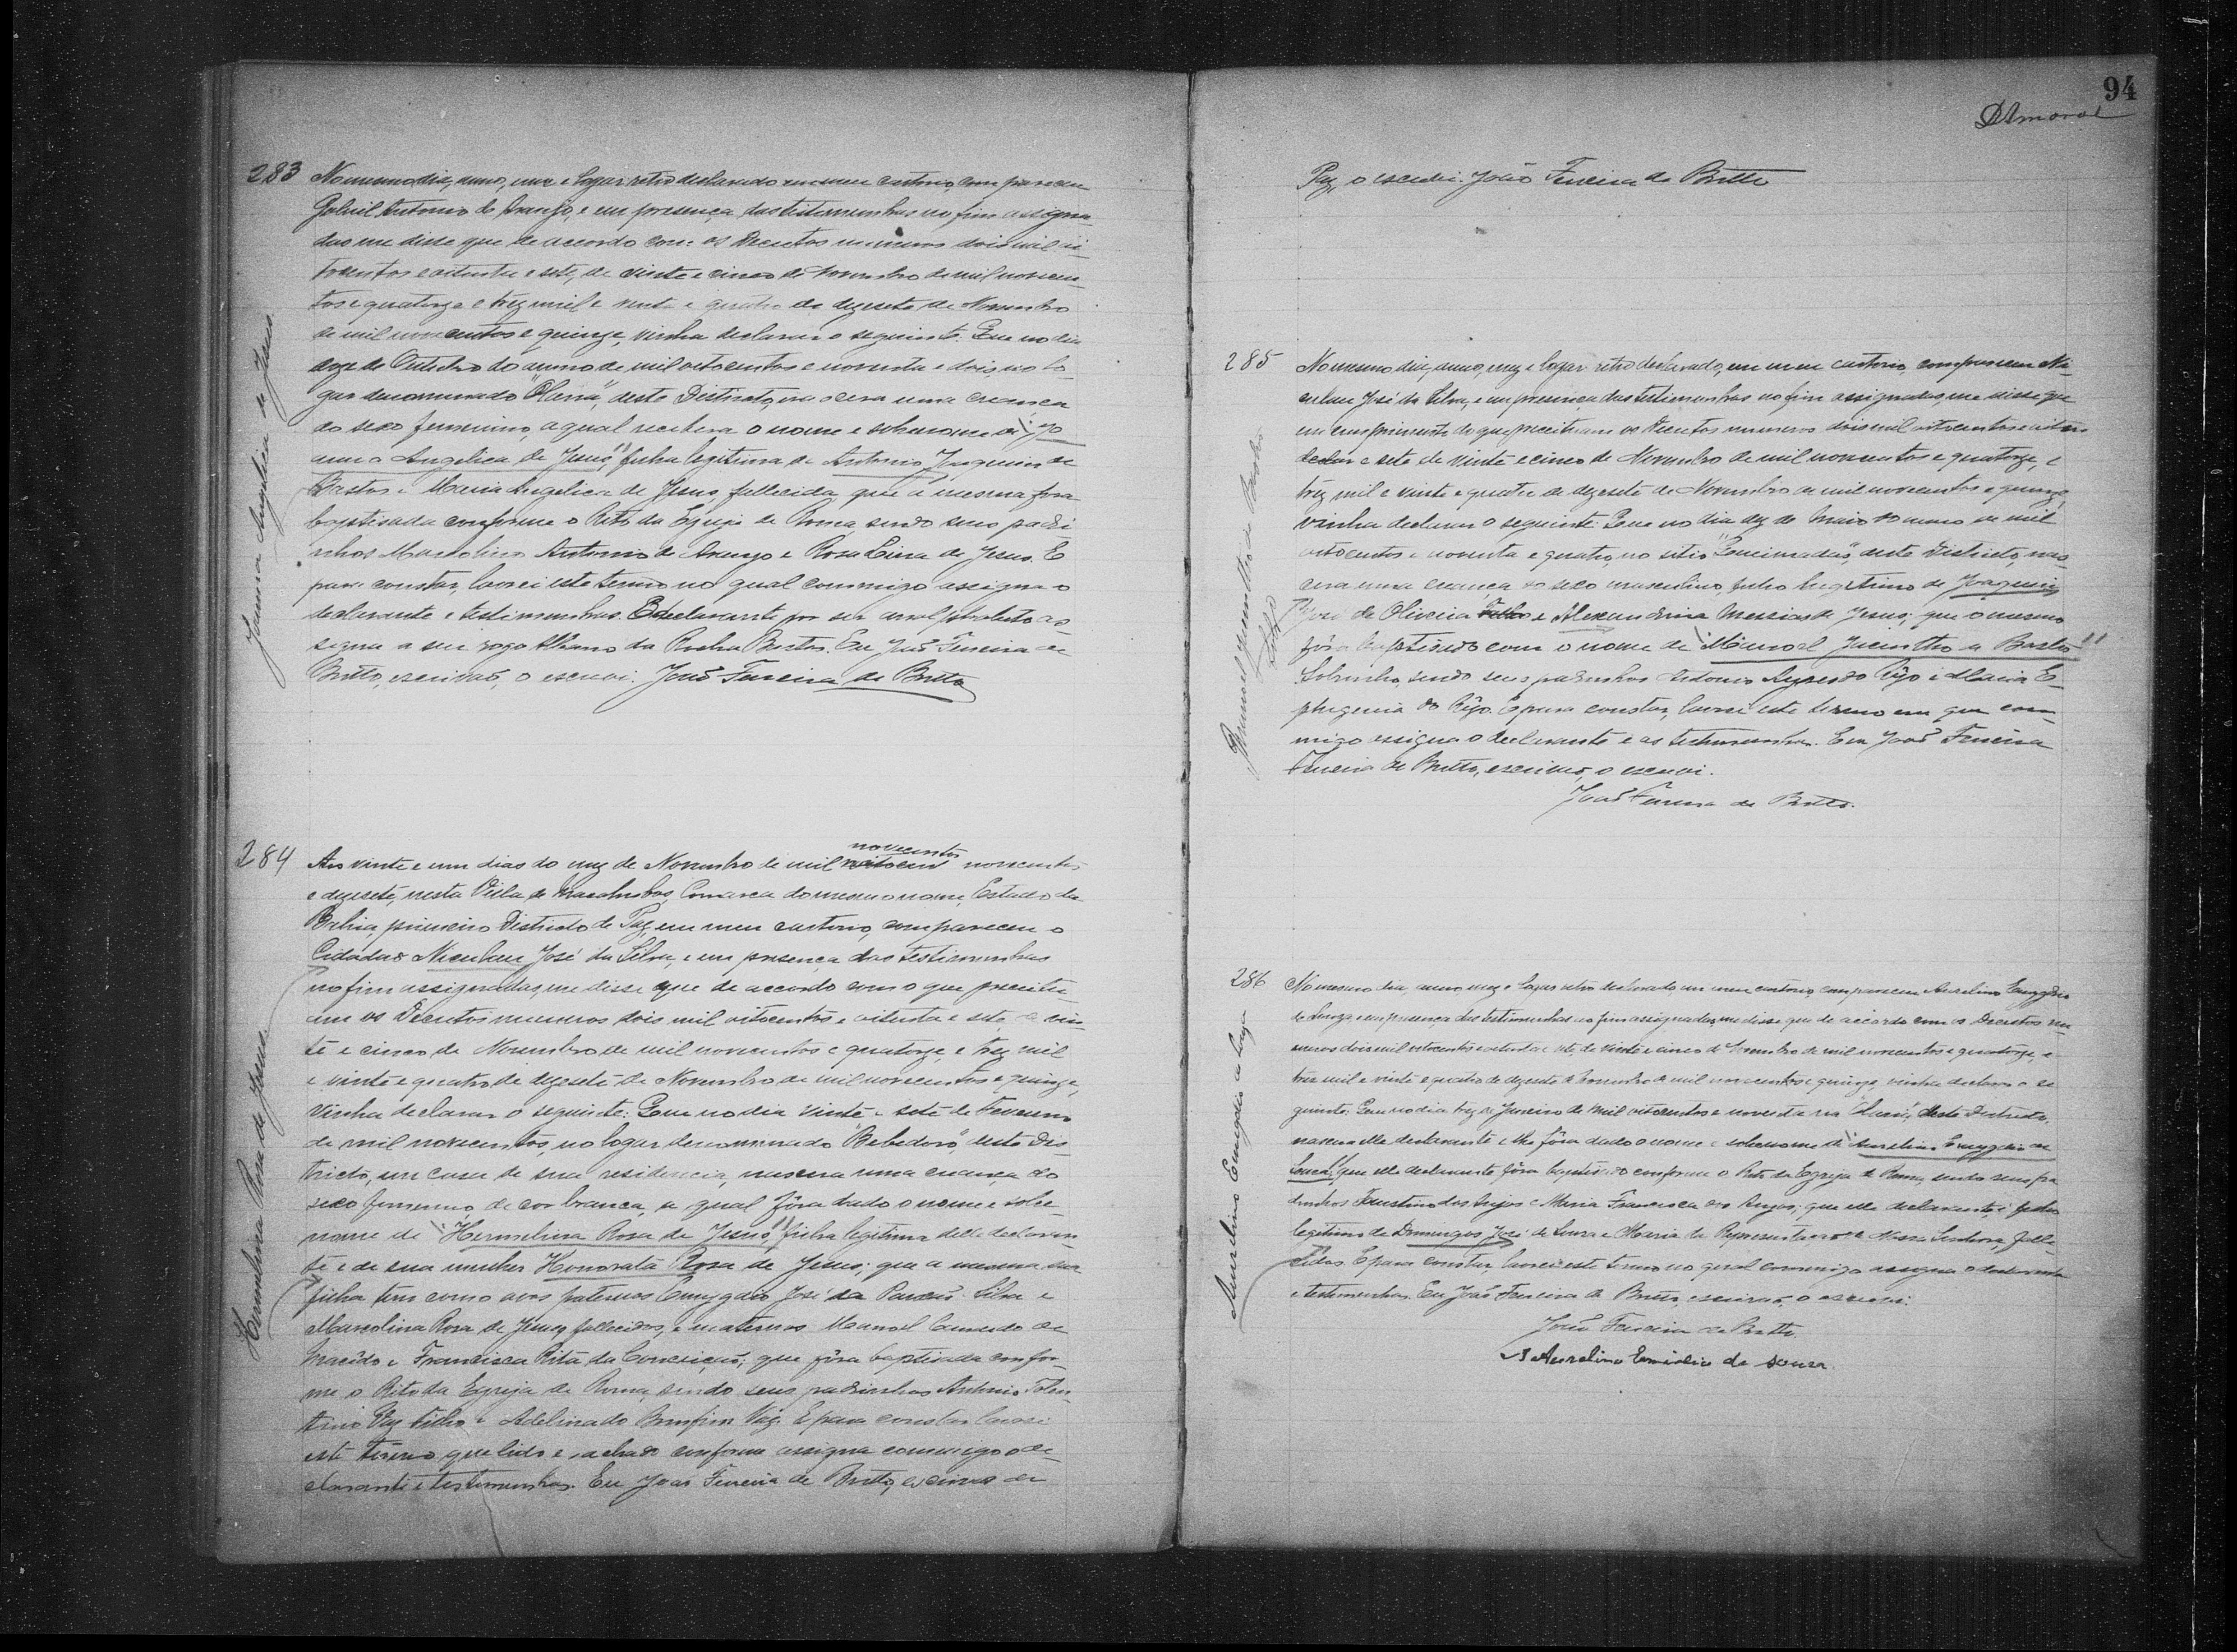 283
No mesmo dia, anno, mez e logar retro declarado em meu cartorio compareceu
Gabriel Antonio de Araujo, e em presença das testemunhas no fim assigna-
das me disse que de accordo com os Decretos numeros dois mil oi-
tocentos e oitenta e sete, de vinte e cinco de Novembro de mil novecen-
tos e quatorze e trez mil e vinte e quatro de dezesete de Novembro
de mil novecentos e quinze, vinha declarar o seguinte: Que no dia
doze de Outubro do anno de mil oitocentos e noventa e dois, no lo-
gar denominado "Olaria", deste Districto, nascera uma creança
do sexo femenino, a qual recebera o nome e sobrenome de "Jo
anna Angelica de Jesus," filha legitima de Antonio Joaquim de
Bastos e Maria Angelica de Jesus, fallecida, que a mesma fora
baptisada conforme o Rito da Egreja de Roma sendo seus padri
nhos Marcolino Antonio de Araujo e Rosa Lina de Jesus. E
para constar, lavrei este termo no qual commigo assigna o
declarante e testemunhas. O declarante por ser analphabeto as
signa a seu rogo Albano da Rocha Bastos. Eu João Ferreira de
Britto, escrivão, o escrevi. João Ferreira de Britto
Joanna Angelica de Jesus
284
Aos vinte e um dias do mez de Novembro de mil novecentos novecentos
e dezesete, nesta Villa de Macahubas, Comarca do mesmo nome, Estado da
Bahia, primeiro Districto de Paz, em meu cartorio, compareceu o
Cidadão José da Silva, e em presença das testemunhas
no fim assignadas, me disse que de accordo com o que preceitu-
am os Decretos numeros dois mil oitocentos e oitenta e sete, de vin-
te e cinco de Novembro de mil novecentos e quatorze, e trez mil
e vinte e quatro de dezesete de Novembro de mil novecentos e quinze,
vinha declarar o seguinte: Que no dia vinte e sete de Fevereiro
de mil novecentos, no logar denominado "Bebedoro", deste Dis-
tricto, em casa de sua residencia, nascera uma creança do
sexo femenino, de cor branca, a qual fôra dado o nome e sobre-
nome de "Hermelina Rosa de Jesus," filha legitima delle declaran-
te e de sua mulher Honorata Rosa de Jesus; que a mesma sua
filha tem como avós paternos Emygdio José da Silva e
Marcolina Rosa de Jesus, fallecidos, e maternos Manoel de
Macêdo e Francisca Rita da Conceição; que fôra baptisada confor-
me o Rito da Egreja de Roma, sendo seus padrinhos Antonio Tolen-
tino Vaz Filho e Adelina do Bomfim Vaz. E para constar lavrei
este termo que lido e achado conforme assigna commigo o de-
clarante e testemunhas. Eu João Ferreira de Britto, escrivão de
Hermelina Rosa de Jesus
94
DAmaral
Paz, o escrevi. João Ferreira de Britto
285
No mesmo dia, anno, mez e logar retro declarado, em meu cartorio, compareceu
José da Silva, e em presença das testemunhas no fim assignadas, me disse que
em cumprimento do que preceituam os Decretos numeros dois mil oitocentos e oiten
e sete de vinte e cinco de Novembro de mil novecentos e quatorze, e
trez mil e vinte e quatro de dezesete de Novembro de mil novecentos e quinze,
vinha declarar o seguinte: Que no dia dez de Maio do anno de mil
oitocentos e noventa e quatro, no sitio "Queimadas", deste Districto, nas-
cera uma creança do sexo masculino, filho legitimo de Joaquim
José de Oliveira e Alexandrina Messias de Jesus; que o mesmo
fôra baptisado com o nome de "Manoel Jacintho de Bastos"
Sobrinho, sendo seus padrinhos Antonio do Rêgo e Maria E-
phigenia do Rêgo. E para constar, lavrei este termo em que com-
migo assigna o declarante e as testemunhas. Eu João Ferreira
Ferreira de Britto, escrivão, o escrevi.
João Ferreira de Britto.
Manoel Jacintho de Bastos
286
No mesmo dia, anno, mez e logar retro declarado em meu cartorio, compareceu Aurelino Emygdio
de Souza e em presença das testemunhas no fim assignadas, me disse que de accordo com os Decretos nu-
meros dois mil oitocentos e oitenta e sete, de vinte e cinco de Novembro de mil novecentos e quatorze, e
trez mil e vinte e quatro de dezesete de Novembro de mil novecentos e quinze, vinha declarar o se
guinte: Que no dia trez de Janeiro de mil oitocentos e noventa na deste Districto,
nascera elle declarante e lhe fôra dado o nome e sobrenome de "Aurelino Emygdio de
Souza", que elle declarante fôra baptisado conforme o Rito da Egreja de Roma, sendo seus pa
drinhos Faustino dos Anjos e Maria Francisca dos Anjos; que elle declarante é filho
legitimo de Domingos José de Souza e Maria da Representação de Nossa Senhora, falle-
cidos. E para constar lavrei este termo no qual commigo assigna o declarante
e testemunhas. Eu João Ferreira de Britto, escrivão, o escrevi.
João Ferreira de Britto.
Aurelino Emidio de Souza.
Aurelino Emygdio de Souza